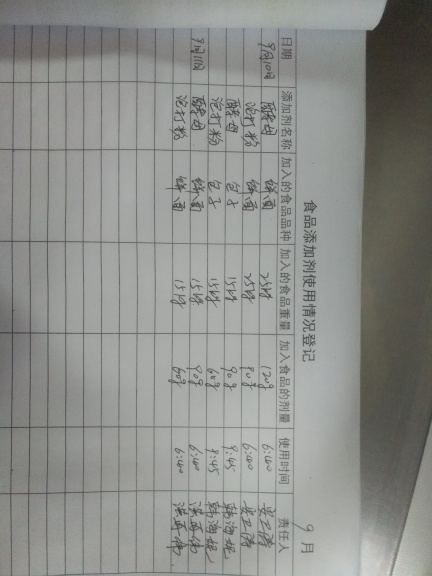 食品添加剂使用情况登记
9月
日期 添加剂名称 加入的食品品种 加入的食品重量 加入食品的剂量 使用时间 责任人
9月10日 酵母 饼面 25kg 120g 6:40
泡打粉 饼面 25kg 80g 6:40
酵母 包子 15kg 90g 8:45 韩海妮
泡打粉 包子 15kg 60g 8:45 韩海妮
9月11日 酵母 饼面 15kg 90g 6:40
泡打粉 饼面 15kg 60g 6:40